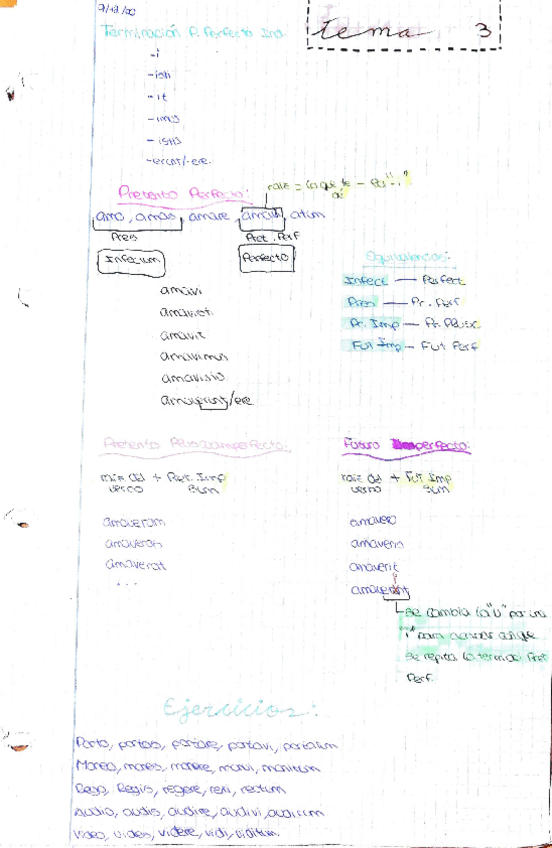 tema 3
Terminación P. Perfecto Ind.
-i
-isti
-it
-imus
-istis
-erunt/-ere.
Pretérito Perfecto:
raíz = lo que te
amo, amas, amare, amavi, atum
Pres Pret. Perf
Infectum Perfecto
Equivalencias:
amavi
amavisti
amavit
amavimus
amavistis
amaverunt/ere
Infect — Perfect
Pres — Pr. Perf
Pr. Imp — Pr. Plusc
Fut Imp — Fut Perf
Pretérito Pluscuamperfecto:
raíz del + Pret. Imp
verbo sum
amaveram
amaveras
amaverat
...
Futuro perfecto:
raíz del + Fut Imp
verbo sum
amavero
amaveris
amaverit
amaverint
se cambia la "u" por una
"i" para
se repita la term. del Pret
Perf.
Ejercicios:
Porto, portas, portare, portavi, portatum
Moneo, mones, monere, monui, monitum
Rego, Regis, regere, rexi, rectum
Audio, audis, audire, audivi, auditum
Video, vides, videre, vidi,